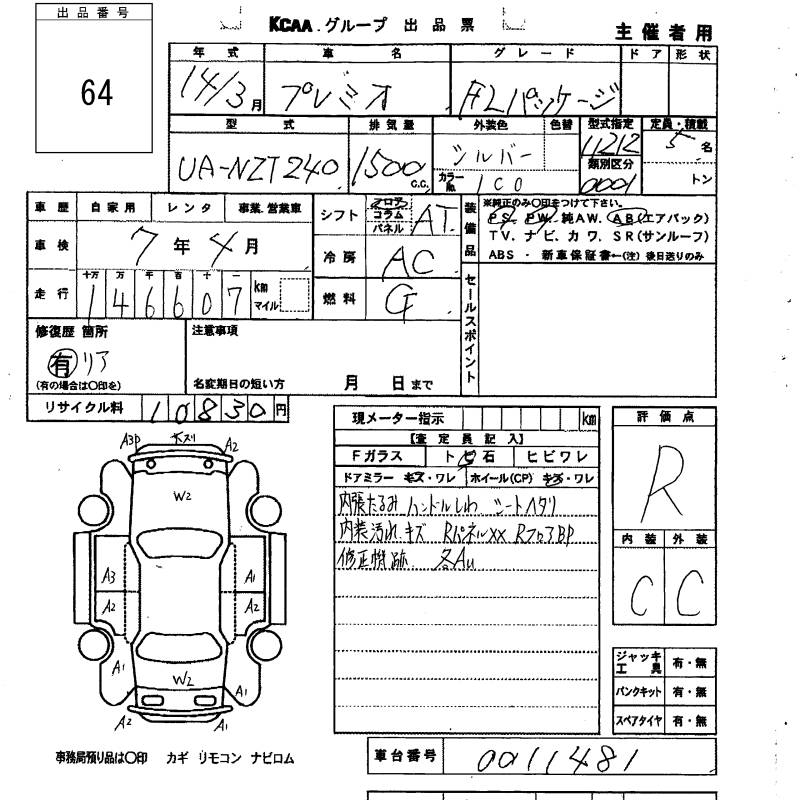 出品番号
64
KCAA.グループ 出品票
主催者用
年式 車名 グレード ドア 形状
14/3月 プレミオ FLパッケージ
型式 排気量 外装色 色替 型式指定 定員・積載
UA-NZT240 1500 C.C. シルバー 11212 5名
カラーNo. 1C0 類別区分 0001 トン
車歴 自家用 レンタ 事業.営業車
車検 7年4月
十万 万 千 百 十 一
走行 146607 km マイル
シフト フロア コラム パネル AT
冷房 AC
燃料 G
装備品
※純正のみ〇印をつけて下さい。
PS. PW. 純AW. AB(エアバック)
TV. ナビ. カワ. SR(サンルーフ)
ABS ・ 新車保証書←(注)後日送りのみ
セールスポイント
修復歴 箇所
有 リア
(有の場合は〇印を)
注意事項
名変期日の短い方 月 日まで
リサイクル料 10830円
現メーター指示 km
【査定員記入】
Fガラス トビ石 ヒビワレ
ドアミラー キズ・ワレ ホイール(CP) キズ・ワレ
内張たるみ ハンドルしわ シートヘタリ
内装汚れ.キズ RパネルXX RフロアBP
修正機跡 各Au
評価点
R
内装 外装
C C
ジャッキ工具 有・無
パンクキット 有・無
スペアタイヤ 有・無
A3P キズリ A2
W2
A3 A1
A2 A2
A1 W2 A1
A2 A1
事務局預り品は〇印 カギ リモコン ナビロム
車台番号 0011481